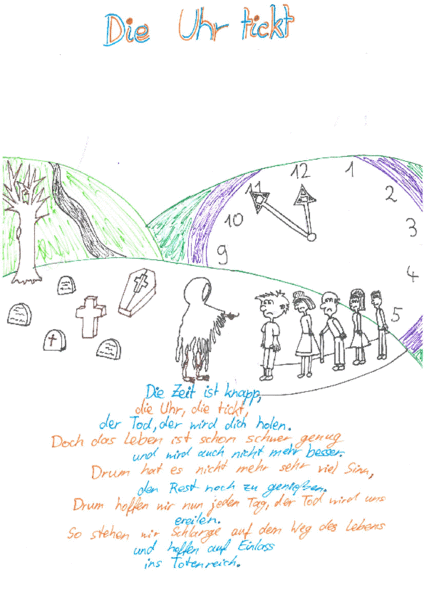 Die Uhr tickt
11
12
1
2
10
3
9
4
5
Die Zeit ist knapp,
die Uhr, die tickt,
der Tod, der wird dich holen.
Doch das Leben ist schon schwer genug
und wird auch nicht mehr besser.
Drum hat es nicht mehr sehr viel Sinn,
den Rest noch zu genießen.
Drum hoffen wir nun jeden Tag, der Tod wird uns
ereilen.
So stehen wir Schlange auf dem Weg des Lebens
und hoffen auf Einlass
ins Totenreich.